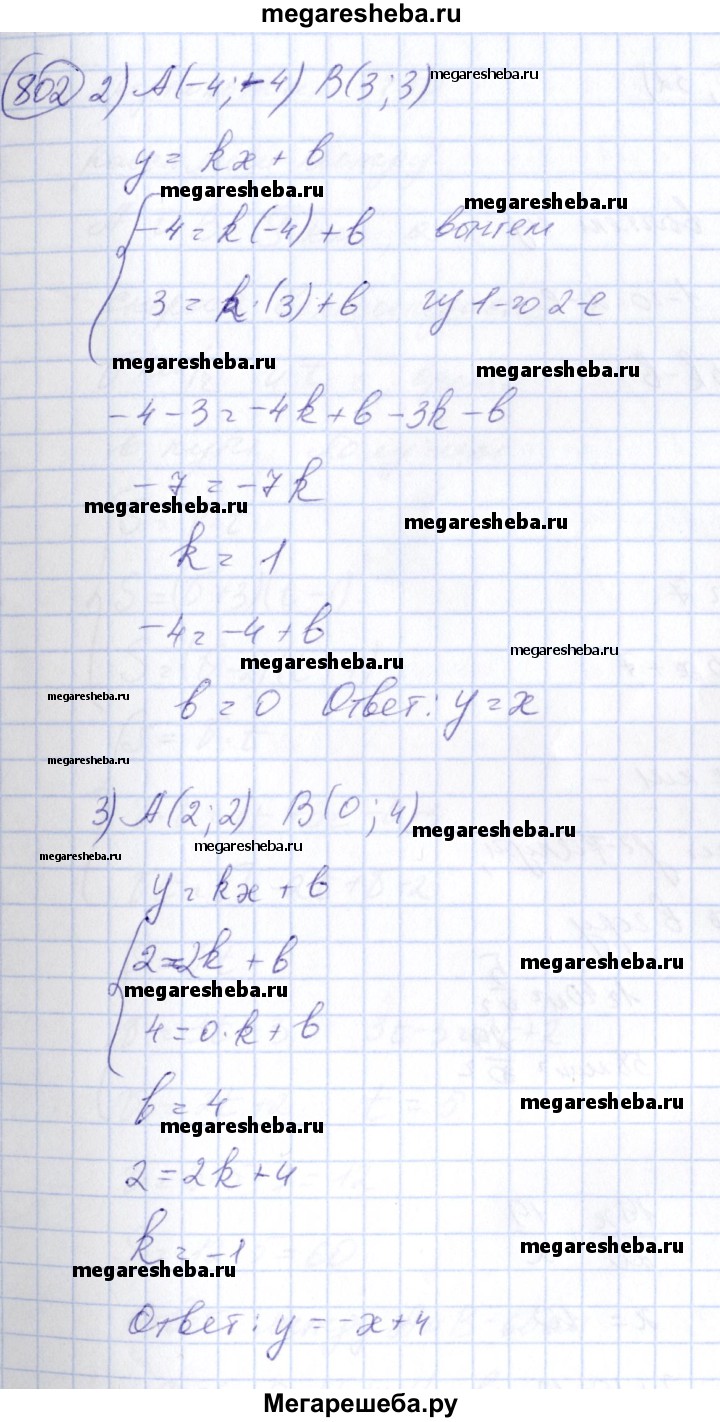 megaresheba.ru
802 2) A(-4;-4) B(3;3) megaresheba.ru
y = kx + b
megaresheba.ru megaresheba.ru
-4 = k(-4) + b вычтем
3 = k·(3) + b из 1-го 2-е
megaresheba.ru megaresheba.ru
-4-3 = -4k+b-3k-b
-7 = -7k
megaresheba.ru megaresheba.ru
k = 1
-4 = -4 + b
megaresheba.ru megaresheba.ru
megaresheba.ru
b = 0 Ответ: y = x
megaresheba.ru
3) A(2;2) B(0;4)
megaresheba.ru megaresheba.ru megaresheba.ru
y = kx + b
2 = 2k + b
megaresheba.ru megaresheba.ru
4 = 0·k + b
b = 4
megaresheba.ru megaresheba.ru
2 = 2k + 4
k = -1
megaresheba.ru megaresheba.ru
Ответ: y = -x+4
Мегарешеба.ру